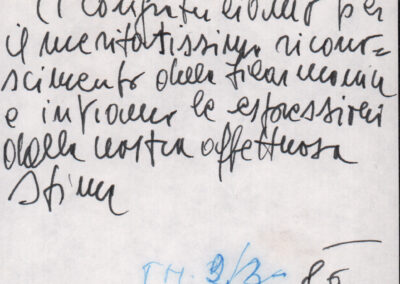 Ci congratuliamo per
il meritatissimo ricono=
scimento della Filarmonica
e inviamo le espressioni
della nostra affettuosa
stima
9/3- 85